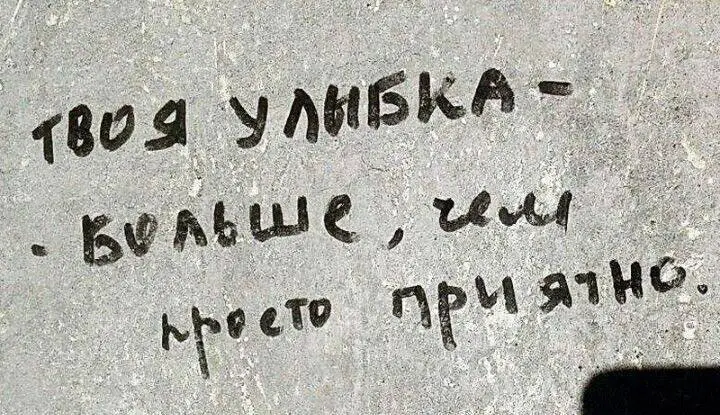 твоя улыбка -
больше, чем
просто приятно.